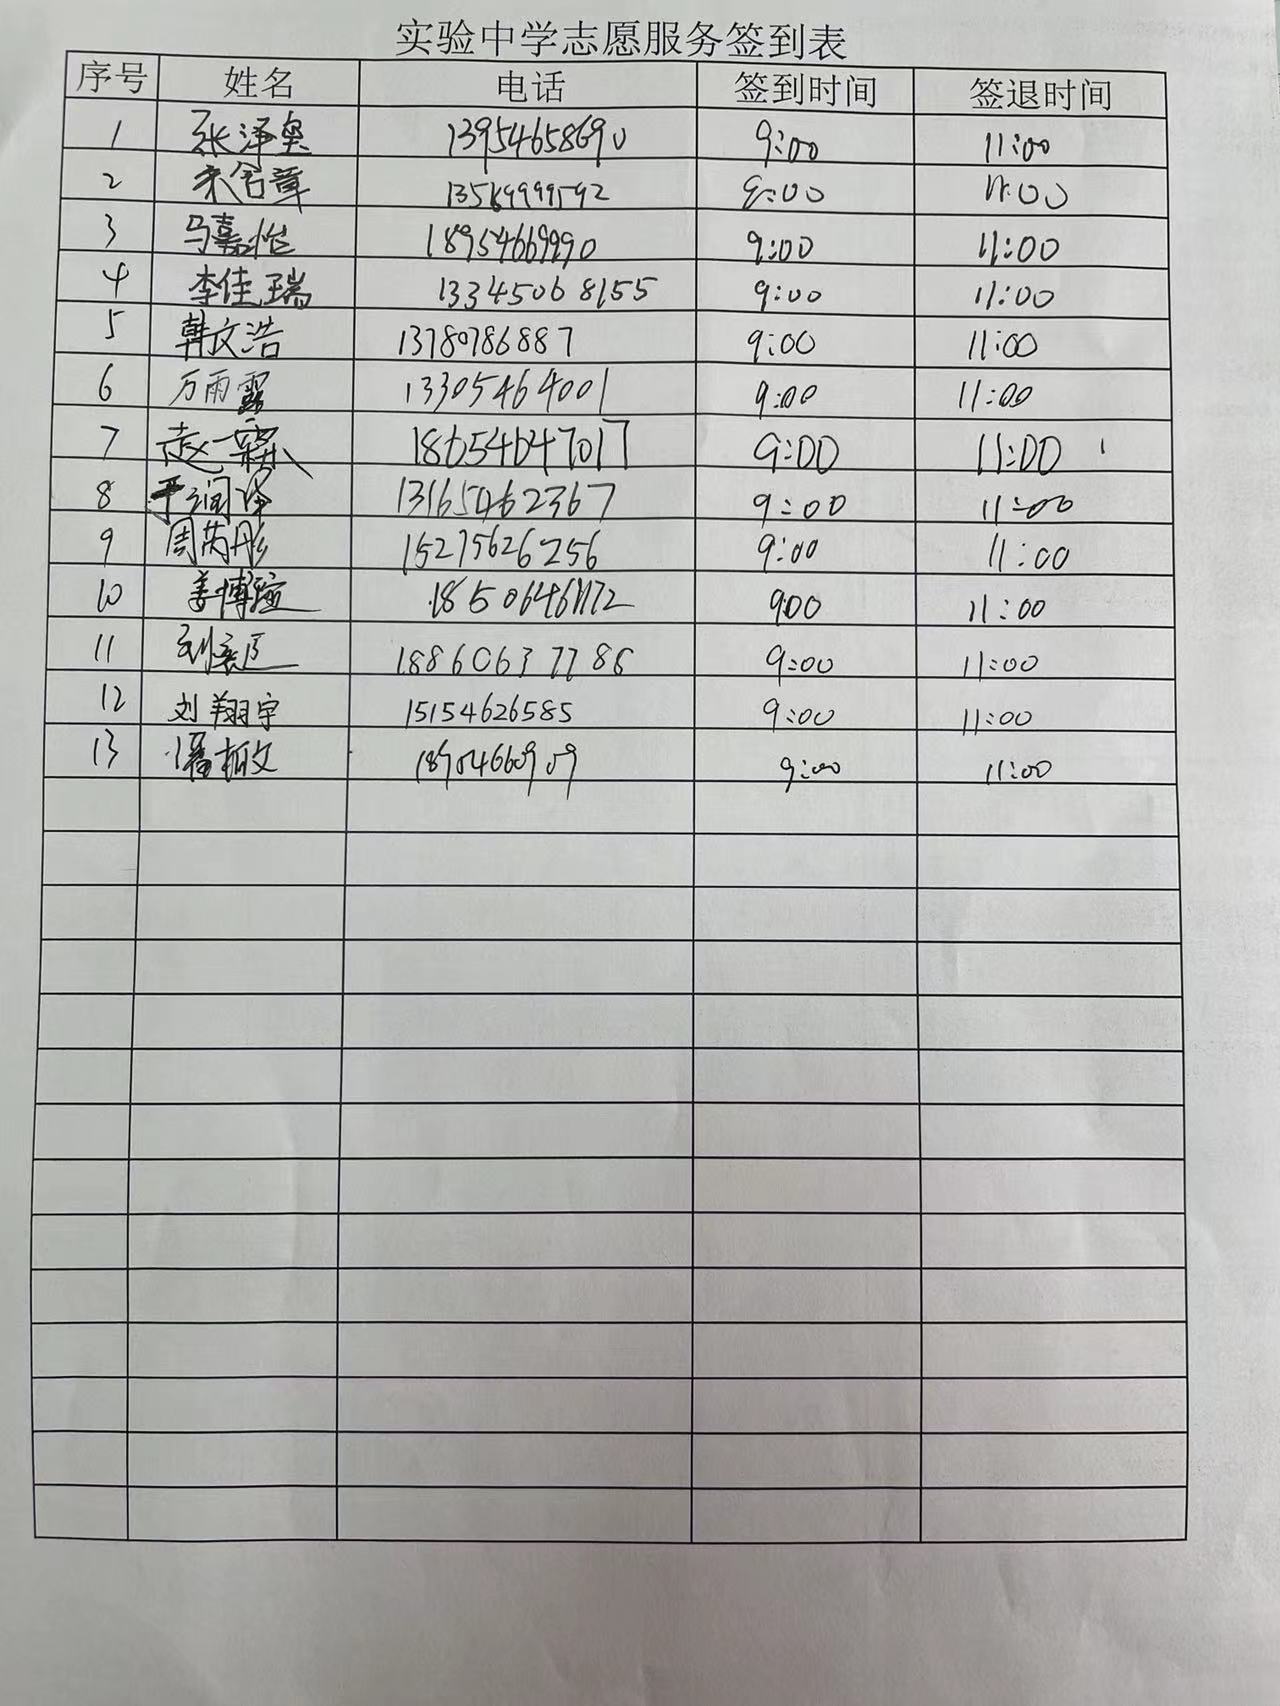 实验中学志愿服务签到表
序号 姓名 电话 签到时间 签退时间
1 张泽奥 13954658690 9:00 11:00
2 9:00 11:00
3 马嘉 18954669990 9:00 11:00
4 李佳瑞 13345068155 9:00 11:00
5 韩文浩 13780786887 9:00 11:00
6 万雨露 13305464001 9:00 11:00
7 赵一霖 18654647017 9:00 11:00
8 于润泽 13165462367 9:00 11:00
9 周芮彤 15275626256 9:00 11:00
10 姜博瑄 900 11:00
11 18860637786 9:00 11:00
12 刘翔宇 15154626585 9:00 11:00
13 潘柏文 9:00 11:00